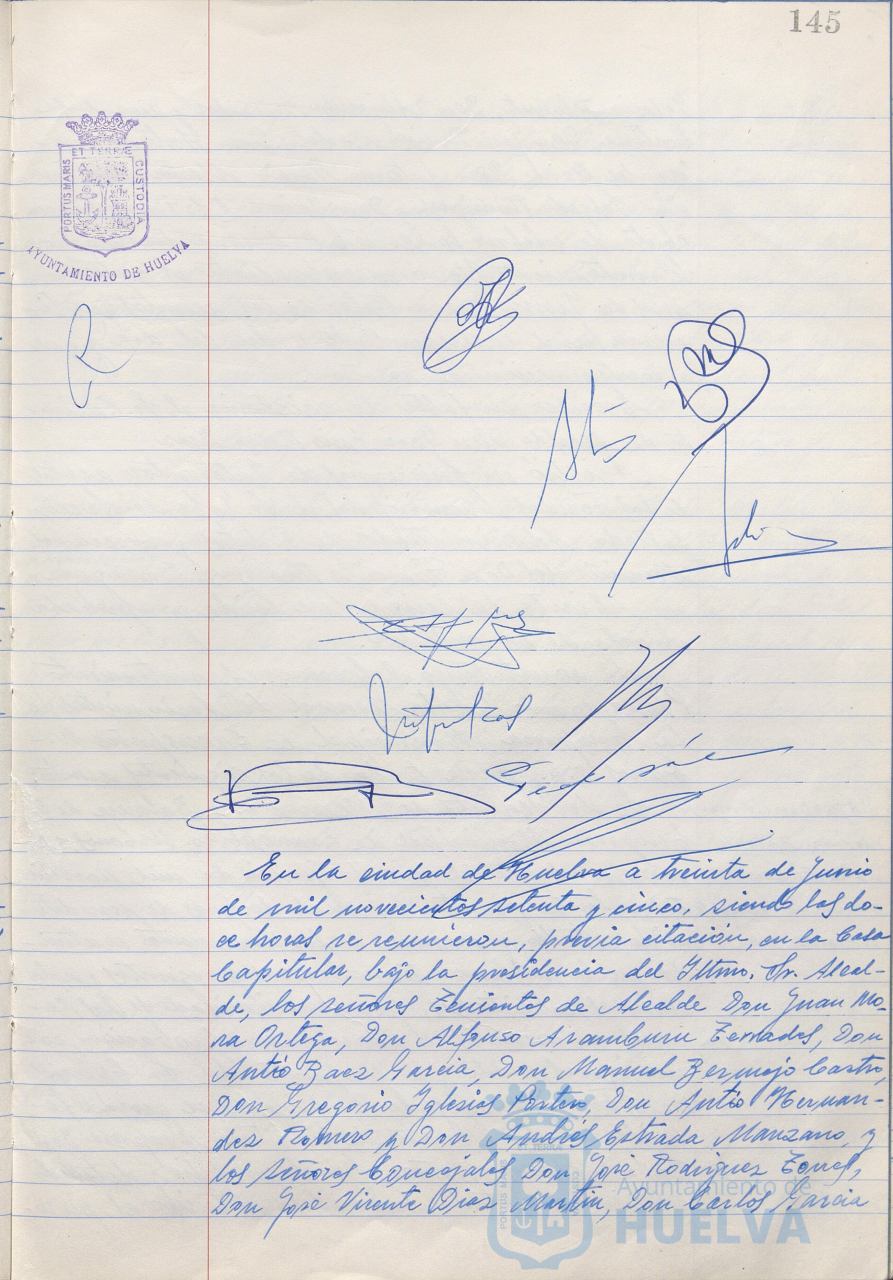 145
ET TERRÆ
PORTUS MARIS
CUSTODIA
AYUNTAMIENTO DE HUELVA
En la ciudad de Huelva a treinta de Junio
de mil novecientos setenta y cinco, siendo las do-
ce horas se reunieron, previa citación, en la Casa
Capitular, bajo la presidencia del Iltmo. Sr. Alcal-
de, los señores Tenientes de Alcalde Don Juan Mo-
ra Ortega, Don Alfonso Aramburu Terrades, Don
Antº Baez Garcia, Don Manuel Bermejo Castro,
Don Gregorio Iglesias Don Antº Hernan-
dez Romero y Don Andrés Estrada Manzano, y
los señores Concejales Don José Rodriguez
Don José Vicente Diaz Martin, Don Carlos Garcia
Ayuntamiento de
HUELVA